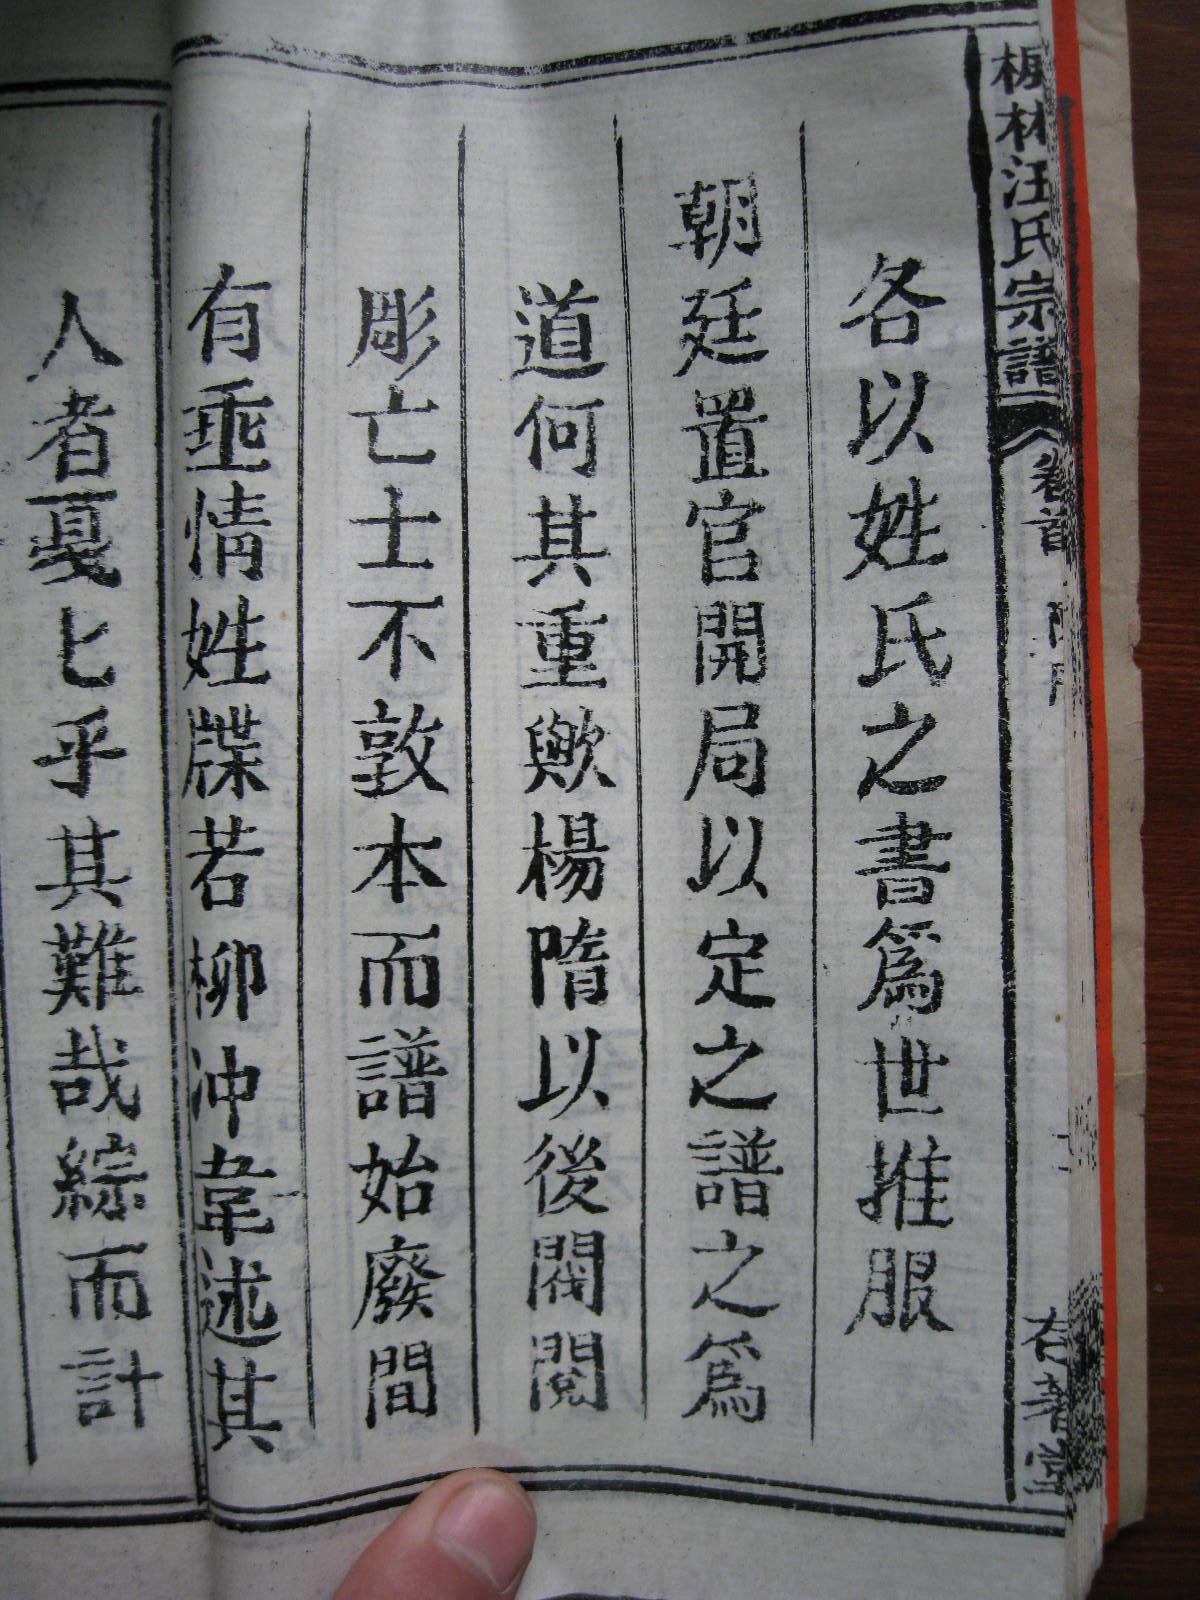 林汪氏宗譜 卷首
各以姓氏之書為世推服
朝廷置官開局以定之譜之為
道何其重歟楊隋以後閥閱
彫亡士不敦本而譜始廢間
有乖情姓牒若柳沖韋述其
人者戛匕乎其難哉綜而計